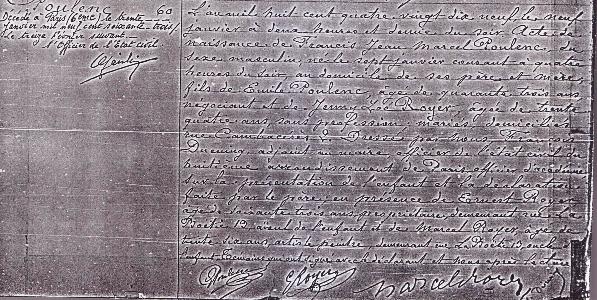 Poulenc
60
Décédé à Paris (6ème) le trente
janvier mil neuf cent soixante trois
Le treize Février suivant.
L'Officier de l'État civil
L'an mil huit cent quatre vingt dix neuf, le neuf
janvier à deux heures et demie du soir. Acte de
naissance de Francis Jean Marcel Poulenc, de
sexe masculin, né le sept janvier courant à quatre
heures du soir, au domicile de ses père et mère,
fils de Emile Poulenc, âgé de quarante trois ans
négociant et de Jenny Royer, âgée de trente
quatre ans, sans profession mariés, domiciliés
rue Cambacérès 2. Dressé par nous
adjoint au maire, officier de l'état civil du
huitième arrondissement de Paris, officier d'académie
sur la présentation de l'enfant et la déclaration
faite par le père, en présence de Ernest Royer
âgé de soixante trois ans, propriétaire, demeurant rue La
Boétie 12, aïeul de l'enfant et de Marcel Royer, âgé de
trente six ans, artiste peintre demeurant rue La Boétie 12, oncle de
l'enfant témoins qui ont signé avec le déclarant et nous après lecture
Poulenc
Royer
Marcel Royer